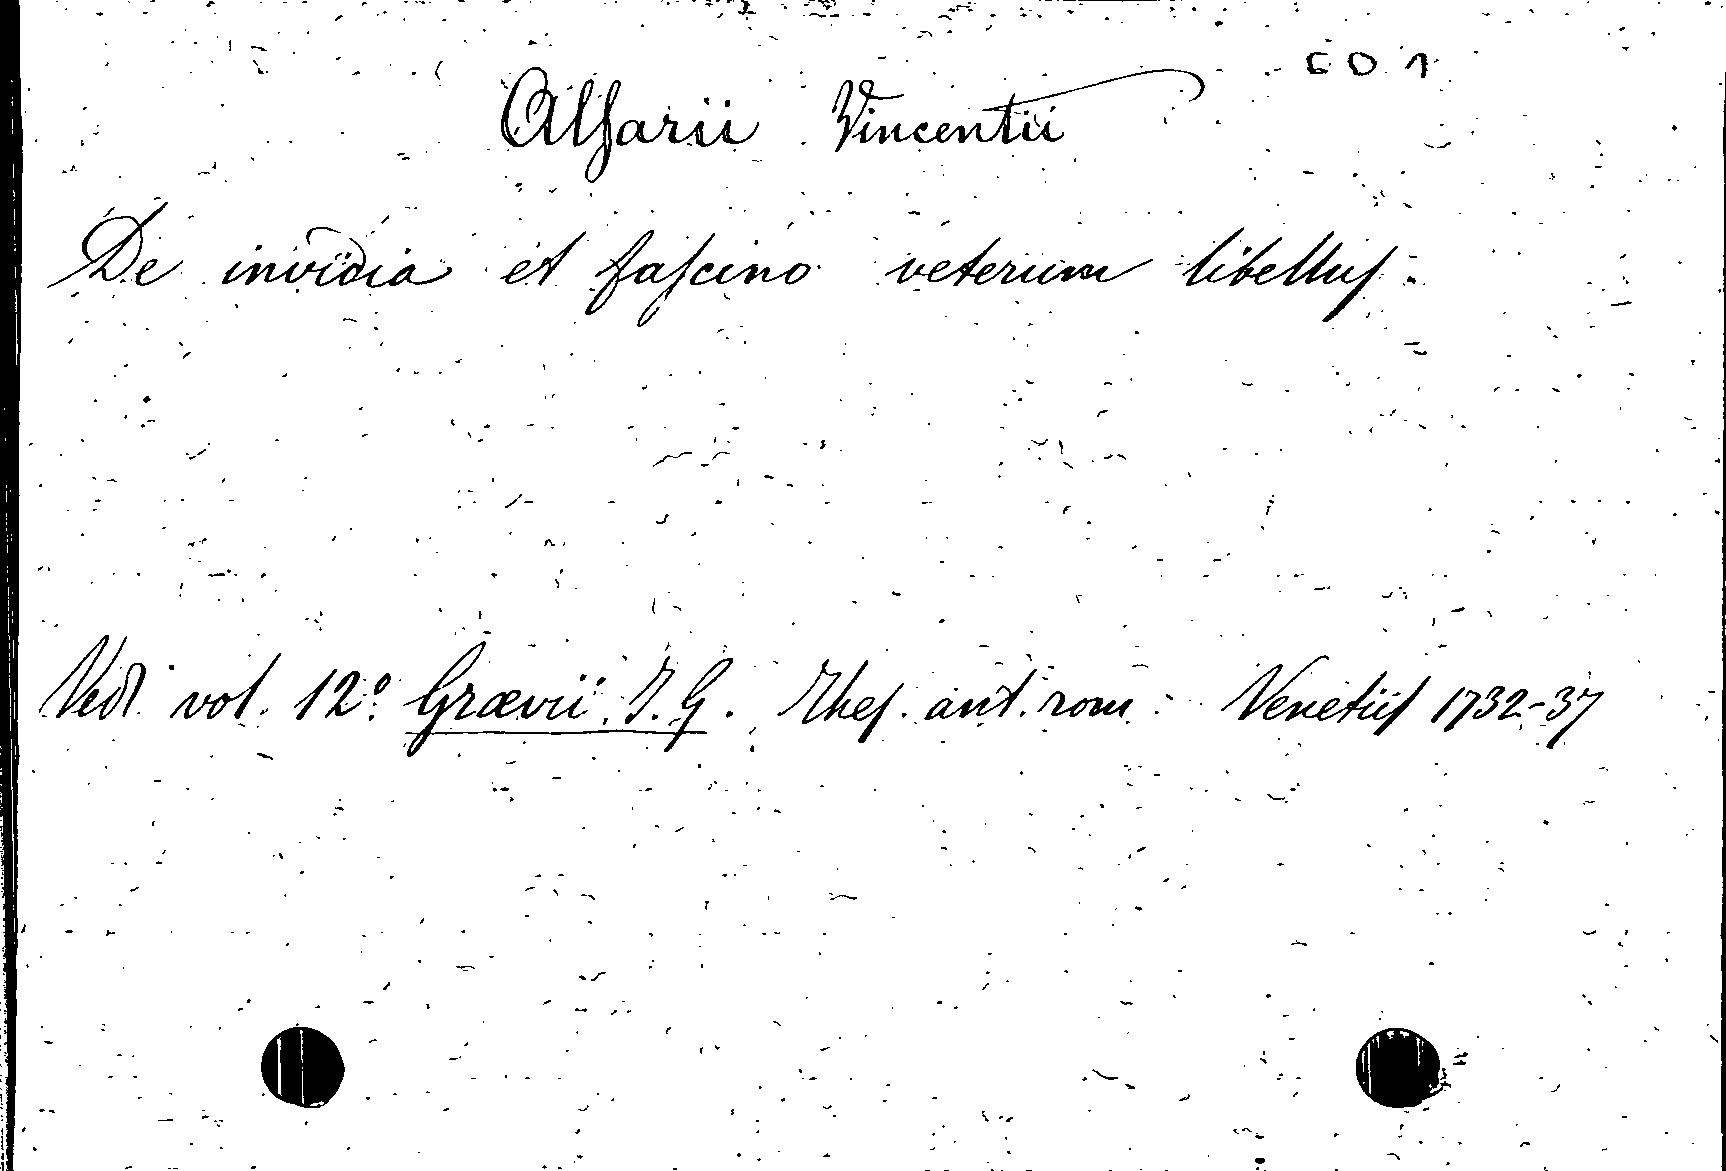 CD 1
Alsarii Vincentii
De invidia et faſcino veterum libelluſ.
Vedi vol. 12º Grævii J. G. Theſ. ant. rom. Venetiiſ 1732-37